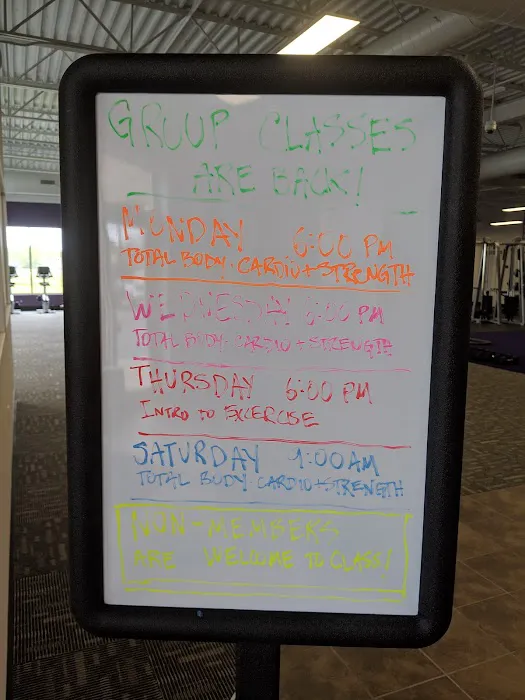 GROUP CLASSES
ARE BACK!
MONDAY 6:00 PM
TOTAL BODY-CARDIO+STRENGTH
WEDNESDAY 6:00 PM
TOTAL BODY-CARDIO+STRENGTH
THURSDAY 6:00 PM
INTRO TO EXCERCISE
SATURDAY 9:00AM
TOTAL BODY CARDIO+STRENGTH
NON-MEMBERS
ARE WELCOME TO CLASS!